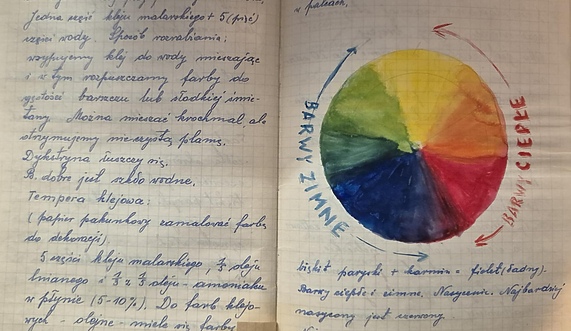 Jedna część kleju malarskiego + 5 (pięć)
części wody. Sposób rozrabiania:
wsypujemy klej do wody mieszając
i w tym rozpuszczamy farby do
gęstości barszczu lub słodkiej śmie-
tany. Można mieszać krochmal, ale
otrzymujemy nieczystą plamę.
Dykstryna łuszczy się.
B. dobre jest szkło wodne.
Tempera klejowa:
(papier pakunkowy zamalować farbą
do dekoracji).
5 części kleju malarskiego, oleju
lnianego i oleju - amoniaku
w płynie (5-10%). Do farb klejo-
wych - olejne - miele się farby
w palcach,
BARWY ZIMNE
BARWY CIEPŁE
błękit paryski + karmin = fiolet (ładny).
Barwy ciepłe i zimne. Nasycenie. Najbardziej
nasycony jest czerwony.